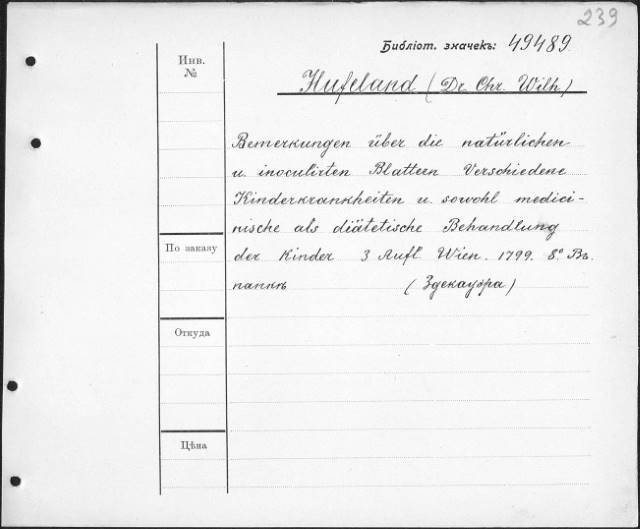 239
Библіот. значекъ: 49489
Инв.
№
Hufeland (Dr. Chr. Wilh.)
Bemerkungen über die natürlichen
u. inoculirten Blattern Verschiedene
Kinderkrankheiten u. sowohl medici-
nische als diätetische Behandlung
По заказу
der Kinder 3 Aufl. Wien. 1799. 8.º Въ
папкѣ (Здекауэра)
Откуда
Цѣна